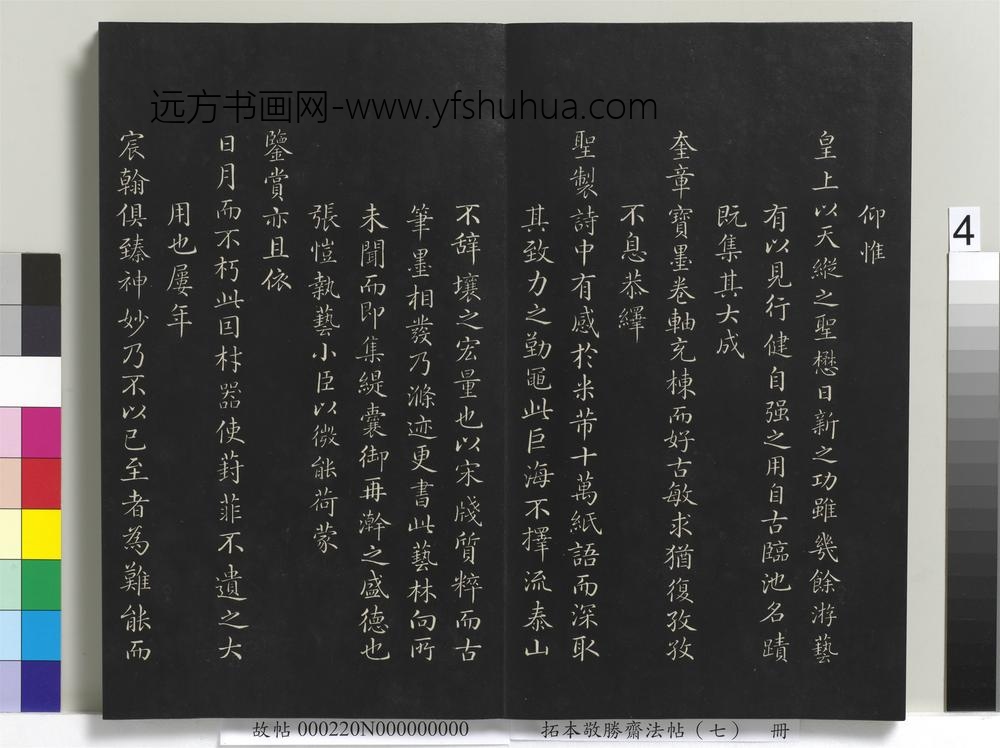 仰惟
皇上以天縱之聖懋日新之功雖幾餘游藝
有以見行健自强之用自古臨池名蹟
既集其大成
奎章寶墨卷軸充棟而好古敏求猶復孜孜
不息恭繹
聖製詩中有感於米芾十萬紙語而深取
其致力之勤黽此巨海不擇流泰山
不辞壤之宏量也以宋牋質粹而古
筆墨相發乃滌迹更書此藝林向所
未聞而即集緹囊御再澣之盛德也
張愷執藝小臣以微能荷蒙
鑒賞亦且依
日月而不朽此因材器使葑菲不遺之大
用也屢年
宸翰俱臻神妙乃不以已至者為難能而
远方书画网-www.yfshuhua.com
4
故帖 000220N000000000
拓本敬勝齋法帖（七） 冊